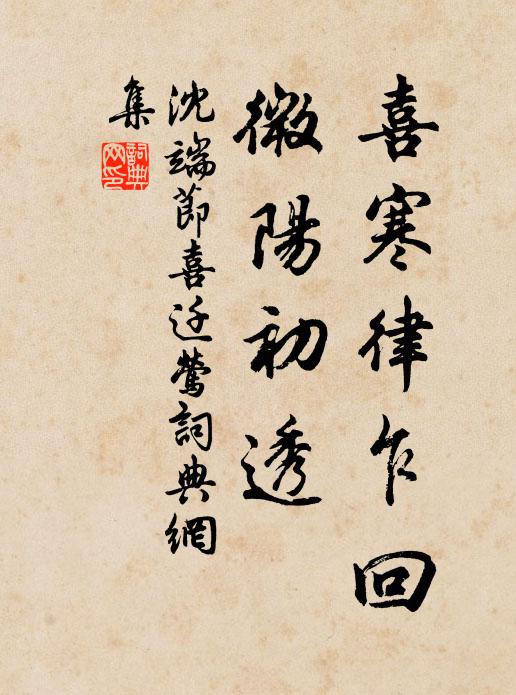 喜寒律乍回
微陽初透
沈端節喜迁鶯詞典網
集
詞典
网印